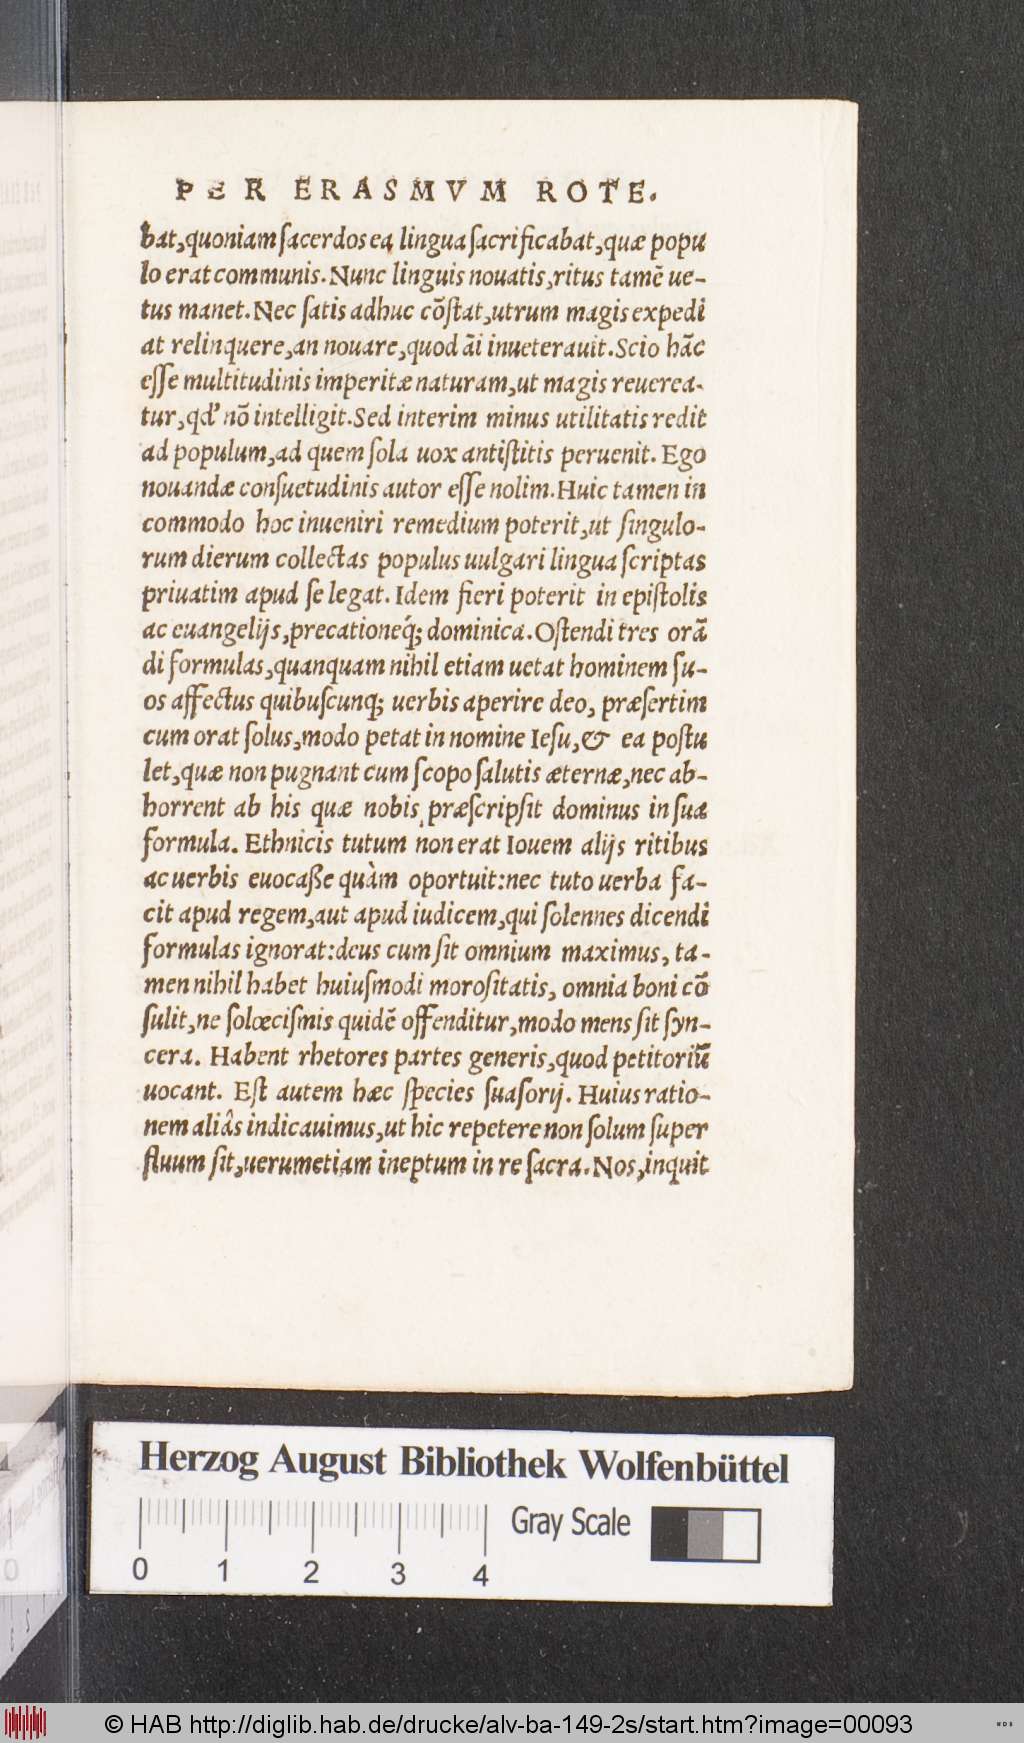 PER ERASMVM ROTE.
bat, quoniam ſacerdos ea lingua ſacrificabat, quæ popu
lo erat communis. Nunc linguis nouatis, ritus tamẽ ue-
tus manet. Nec ſatis adhuc cõſtat, utrum magis expedi
at relinquere, an nouare, quod ãi inueterauit. Scio hãc
eſſe multitudinis imperitæ naturam, ut magis reuerea-
tur, qđ nõ intelligit. Sed interim minus utilitatis redit
ad populum, ad quem ſola uox antiſtitis peruenit. Ego
nouandæ conſuetudinis autor eſſe nolim. Huic tamen in
commodo hoc inueniri remedium poterit, ut ſingulo-
rum dierum collectas populus uulgari lingua ſcriptas
priuatim apud ſe legat. Idem fieri poterit in epiſtolis
ac euangelijs, precationeq́; dominica. Oſtendi tres orã
di formulas, quanquam nihil etiam uetat hominem ſu-
os affectus quibuſcunq; uerbis aperire deo, præſertim
cum orat ſolus, modo petat in nomine Ieſu, & ea poſtu
let, quæ non pugnant cum ſcopo ſalutis æternæ, nec ab-
horrent ab his quæ nobis præſcripſit dominus in ſua
formula. Ethnicis tutum non erat Iouem alijs ritibus
ac uerbis euocaße quàm oportuit: nec tuto uerba fa-
cit apud regem, aut apud iudicem, qui ſolennes dicendi
formulas ignorat: deus cum ſit omnium maximus, ta-
men nihil habet huiuſmodi moroſitatis, omnia boni cõ
ſulit, ne ſolœciſmis quidẽ offenditur, modo mens ſit ſyn-
cera. Habent rhetores partes generis, quod petitoriũ
uocant. Eſt autem hæc ſpecies ſuaſorij. Huius ratio-
nem aliâs indicauimus, ut hic repetere non ſolum ſuper
fluum ſit, uerumetiam ineptum in re ſacra. Nos, inquit
Herzog August Bibliothek Wolfenbüttel
Gray Scale
0 1 2 3 4
© HAB http://diglib.hab.de/drucke/alv-ba-149-2s/start.htm?image=00093